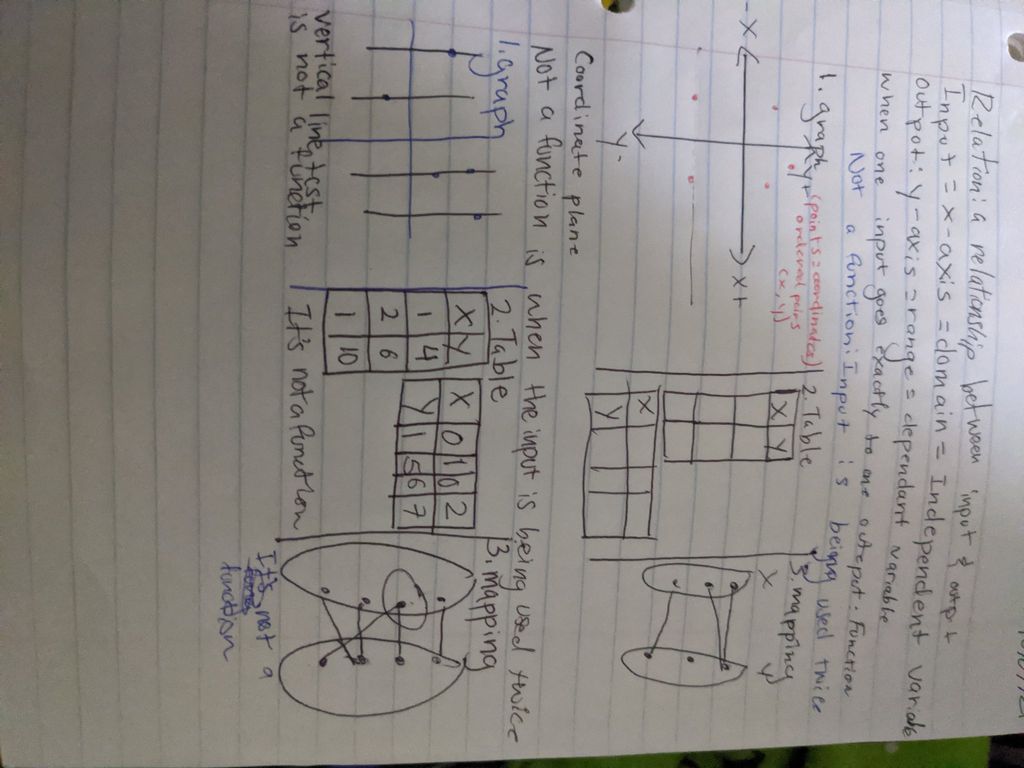 Relation: a relationship between input & output
Input = x-axis = domain = Independent variable
output: y-axis = range = dependant variable
when one input goes exactly to one outeput. Function
Not a function: Input is being used twice
1. graph (points = coordinates)
ordered pairs
(x, y)
y+
-x
x+
y-
Coordinate plane
2. Table
X Y
X
Y
3. mapping
X Y
Not a function is when the input is being used twice
1. graph
vertical line test
is not a function
2. Table
X Y
1 4
2 6
1 10
X 0 1 10 2
Y 1 5 6 7
It's not a function
3. mapping
It's not a
function